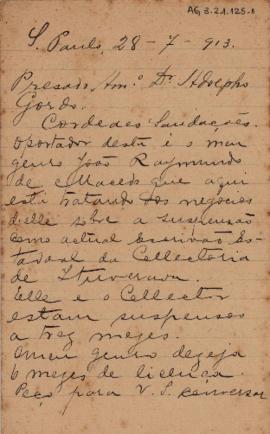 AG 3.21.125-1
S. Paulo, 28-7-913.
Presado Amº Dr. Adolpho
Gordo.
Cordeaes Saudações.
O portador desta é o meu
genro João Raymundo
de Macedo que aqui
está tratando dos negocios
delle sobre a suspensão
como actual Escrivão Es-
tadoal da Collectoria
de Ituverava.
Elle e o Collector
estam suspensos
a trez mezes.
O meu genro deseja
6 mezes de licença.
Peço para V. S. conversar